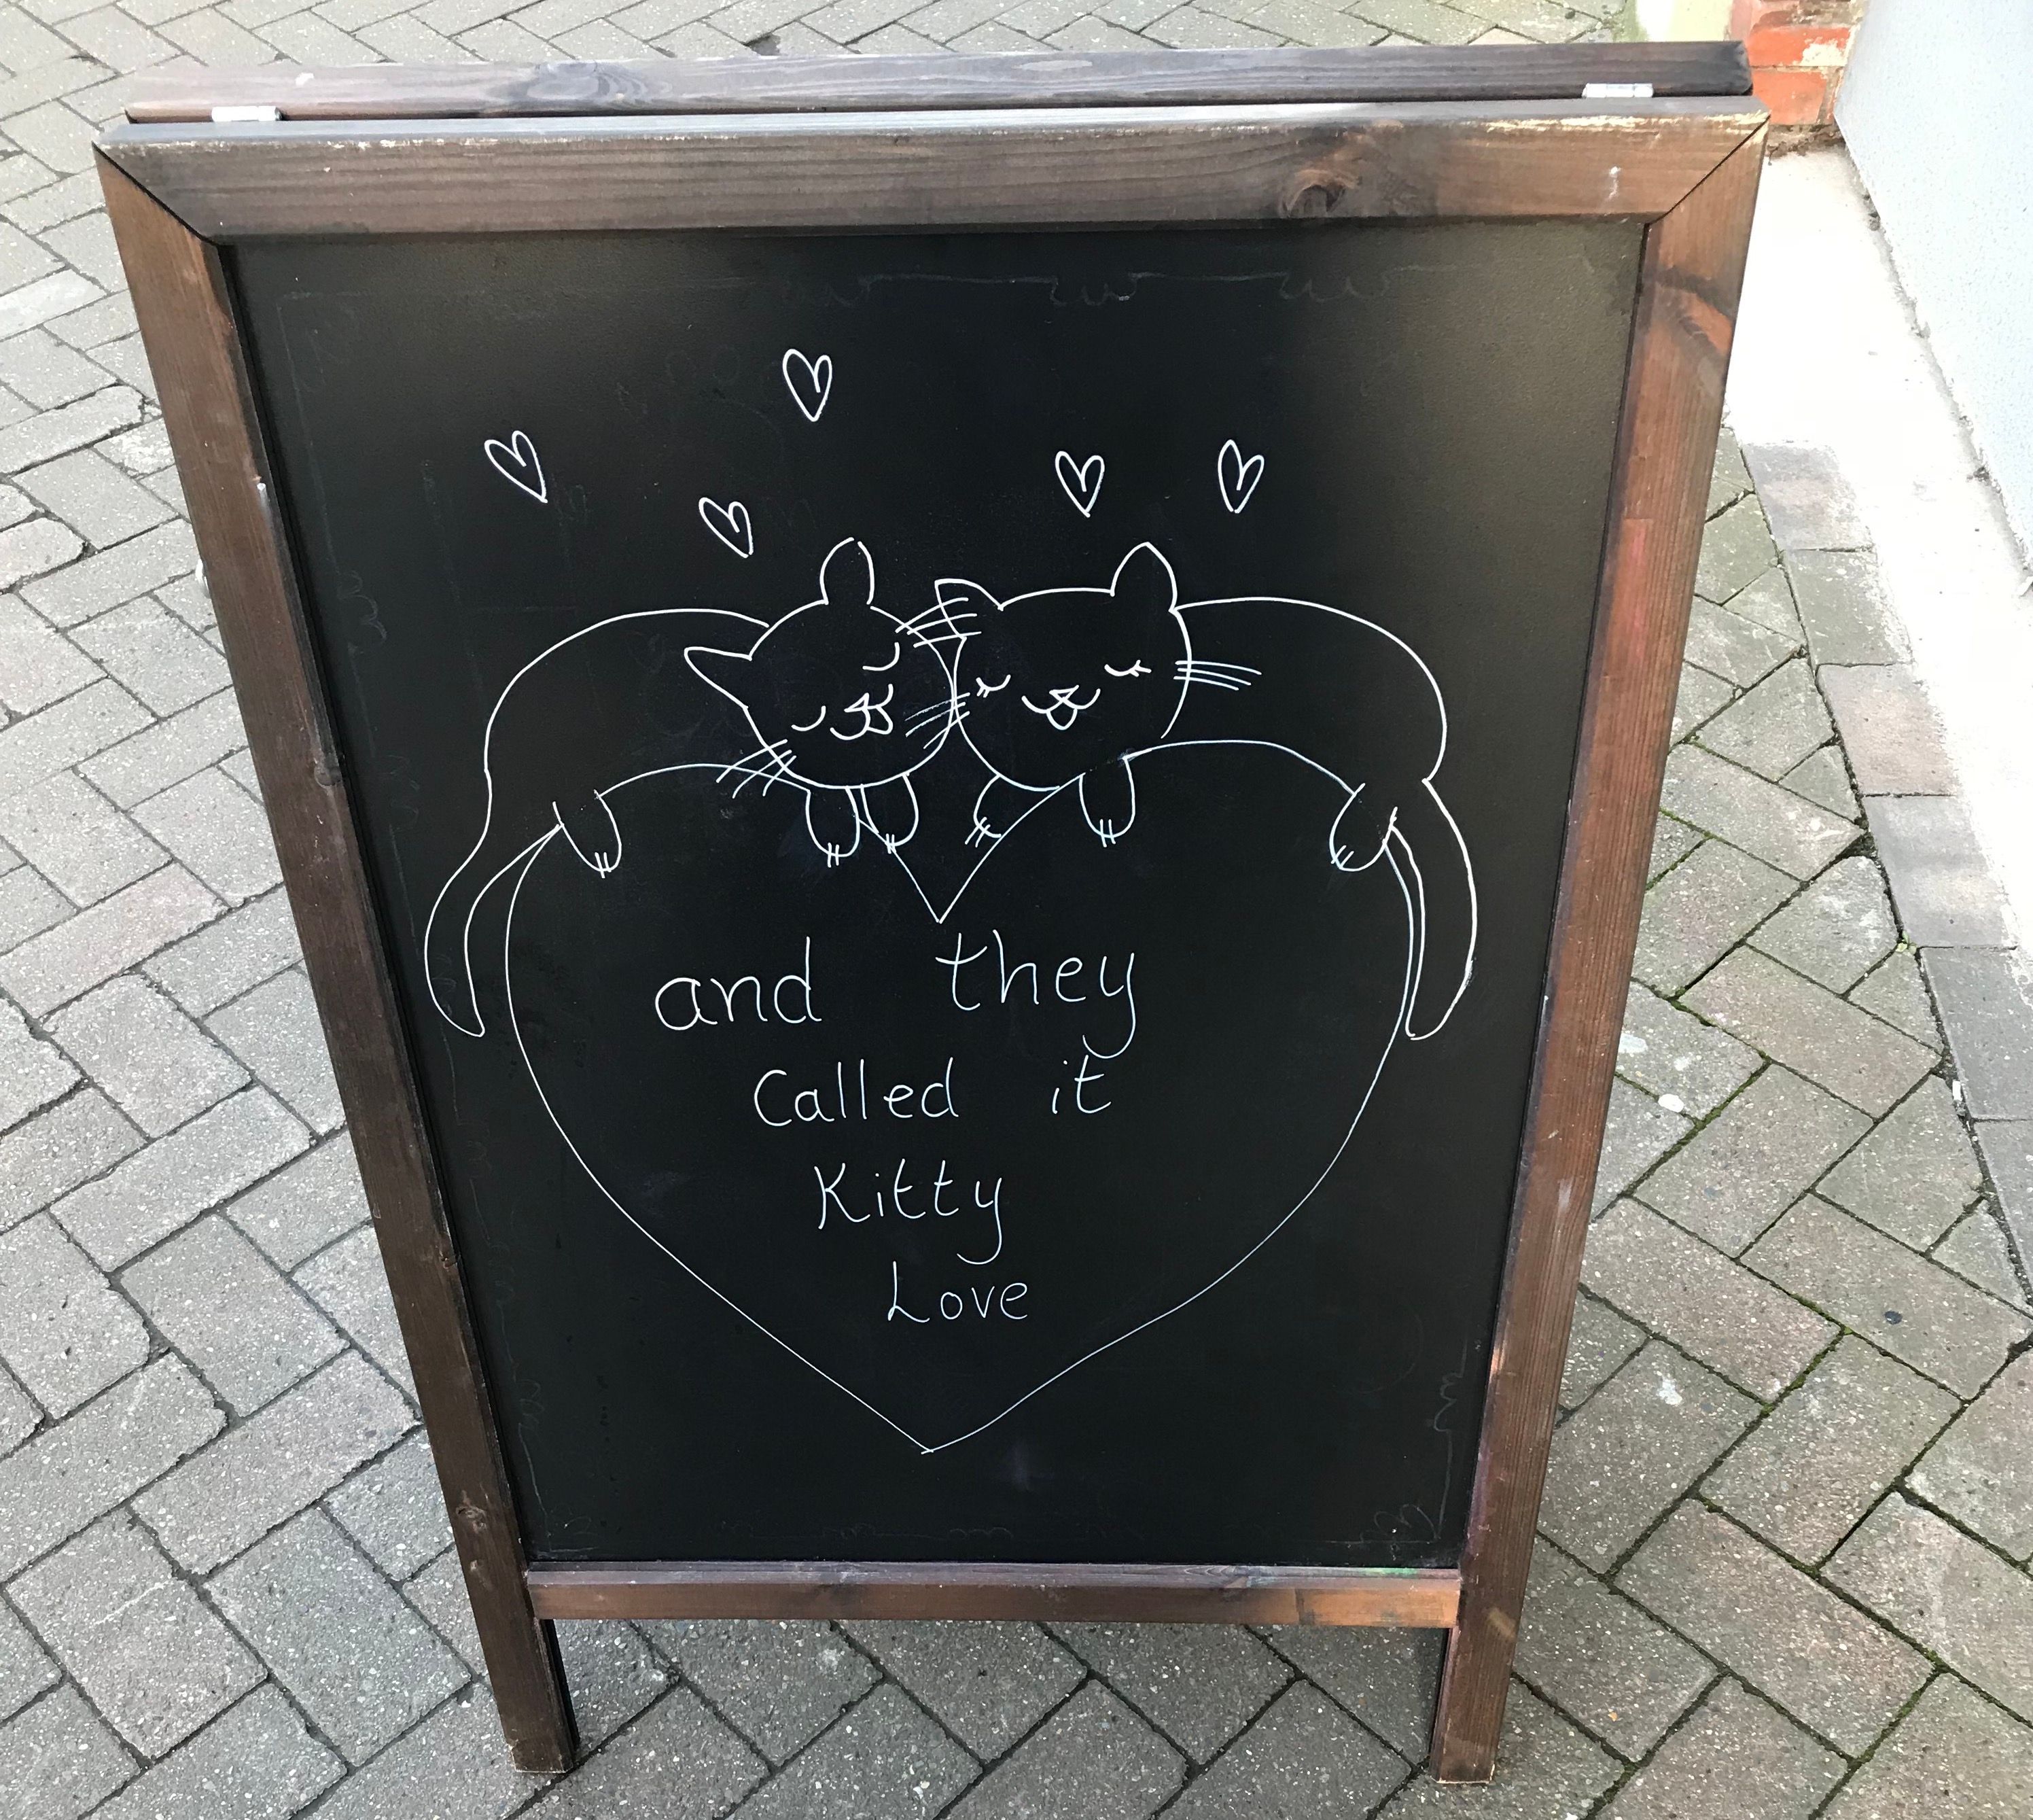 and they
Called it
Kitty
Love